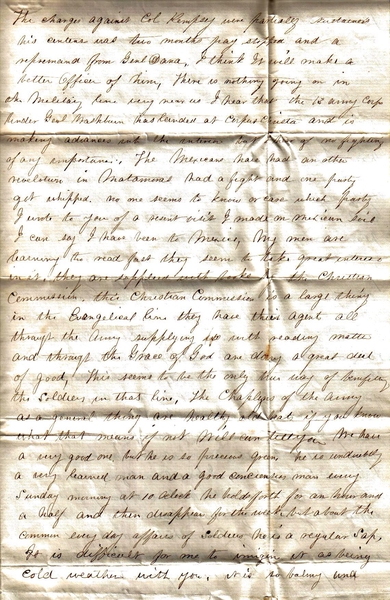 The charges against Col. Kempsey were partially sustained
his sentence was two months pay stopped and a
reprimand from Genl Dana, I think it will make a
better Officer of him, There is nothing going on in
the Military line very near us I hear that the 13 army Corps
under Genl Washburn has landed at Corpus Christa and is
making advances into the interior but no fighting
of any importance, The Mexicans have had an other
revolution in Matamoras had a fight and one party
got whipped, no one seems to know or care which party
I wrote to you of a recent visit I made on mexican soil
I can say I have been to Mexico, My men are
learning to read fast they seem to take great interest
in it, they are supplied with books by the Christian
Commission, this Christian Commission is a large thing
in the Evangelical line they have their agent all
through the Army supplying us with reading matter
and through the Grace of God are doing a great deal
of good, This seems to be the only true way of benefit
the Soldier in that line, The Chaplins of the Army
as a general thing are if you know
what that means if not Will can tell you We have
a very good one but he is so precious green he is undoubtedly
a very learned man and a good conciencious man every
Sunday morning at 10 oclock he holds forth for an hour and
a half and then disappear for the week but about the
common every day affairs of Soldiers he is a regular Sap,
It is difficult for me to imagin it as being
cold weather with you, it is so balmy and